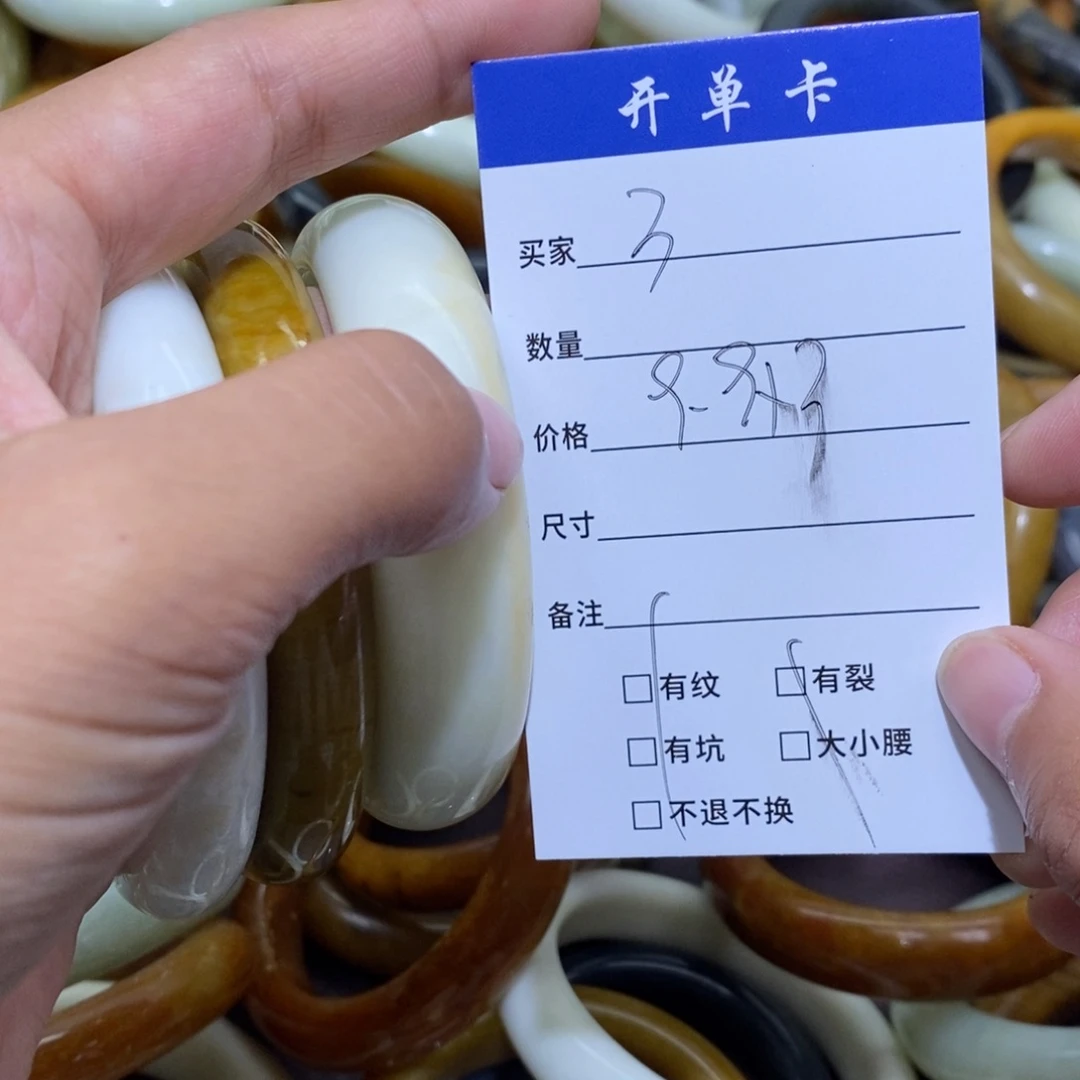 开单卡
买家 3
数量
价格 9.9x3
尺寸
备注
□有纹 □有裂
□有坑 □大小腰
□不退不换